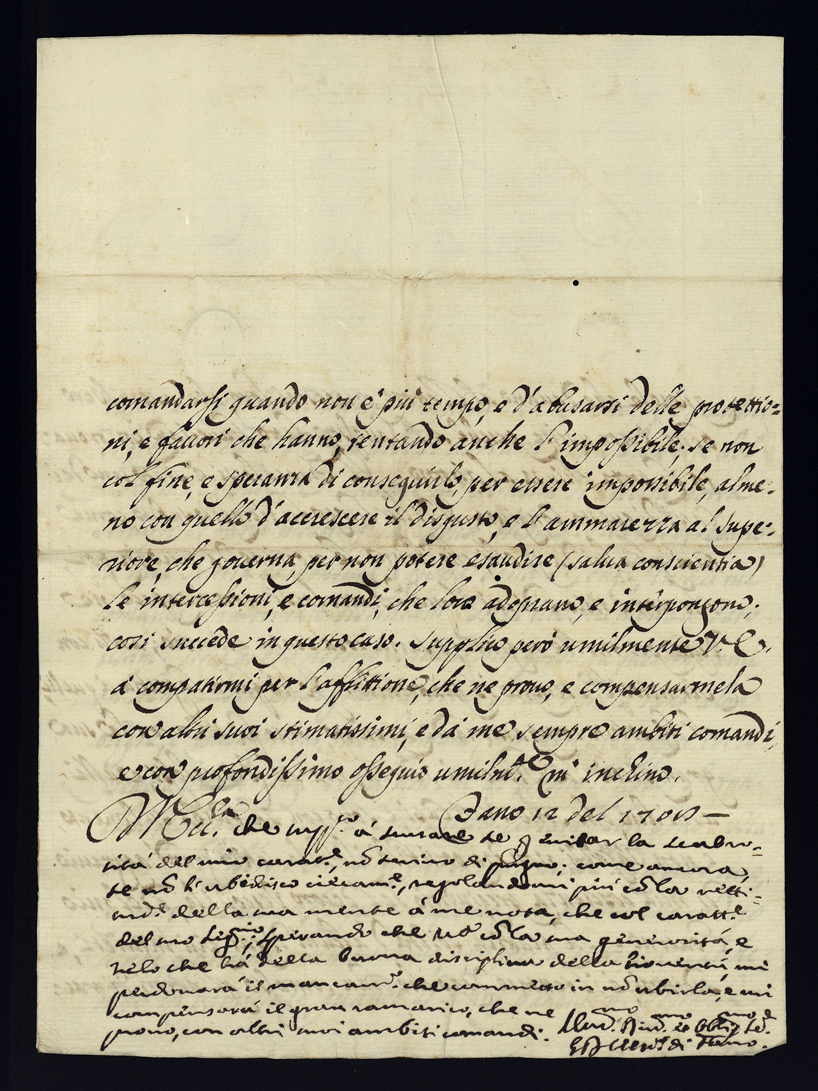 comandarsi quando non è più tempo, e d'abusarsi delle protettio=
ni, e favori che hanno, tentando anche l'impossibile, se non
col fine, e speranza di conseguirlo, per essere impossibile, alme=
no con quello d'accrescere il disgusto, e l'ammarezza al supe=
riore, che governa, per non potere esaudire (salva conscientia)
le intercessioni, e comandi, che loro adoprano, e interpongono;
così succede in questo caso. Supplico però umilmente V. E.
à compatirmi per l'afflittione, che ne provo, e compensarmela
con altri suoi stimatissimi, e da me sempre ambiti comandi,
e con profondissimo ossequio umilm.te m'inchino.
Fano 12 del
che supp.co à scusare se p evitar la scabro=
sità del mio caratt.e, nõ scrivo di pugno; come ancora,
se nõ l'ubidisco ciecam.e, regolandomi più cõ la retti=
nd.e della sua mente à me nota, che col caratt.e
del suo; sperando che cõ la sua generosità, e
zelo che hà della buona disciplina della gioventù, mi
perdonarà il mancam.to che commetto in nõ ubirla, e mi
compensarà il gran ramarico, che ne
provo, con altri suoi ambiti comandi.
di Fano.